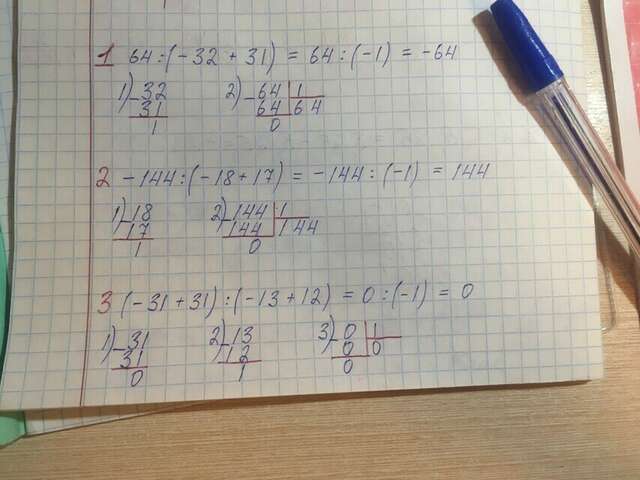 1 64 : (-32 + 31) = 64 : (-1) = -64
1) -32 2) -64 | 1
31 64 | 64
1 0
2 -144 : (-18 + 17) = -144 : (-1) = 144
1) -18 2) -144 | 1
17 144 | 144
1 0
3 (-31 + 31) : (-13 + 12) = 0 : (-1) = 0
1) -31 2) -13 3) -0 | 1
31 12 0 | 0
0 1 0